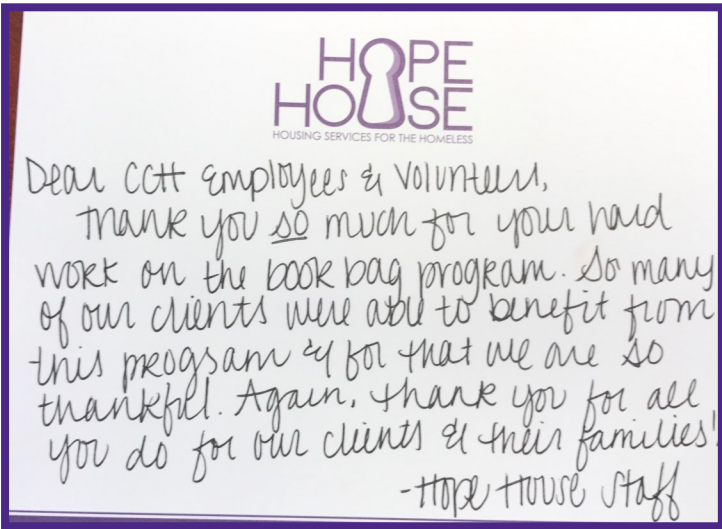 HOPE
HOUSE
HOUSING SERVICES FOR THE HOMELESS
Dear CCH Employees & Volunteers,
Thank you so much for your hard
work on the book bag program. So many
of our clients were able to benefit from
this program & for that we are so
thankful. Again, thank you for all
you do for our clients & their families!
-Hope House Staff